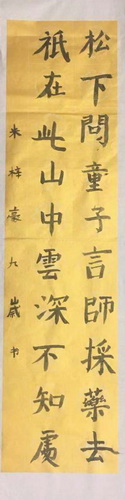 松下問童子言師採藥去
祇在此山中雲深不知處
朱梓豪九歲书